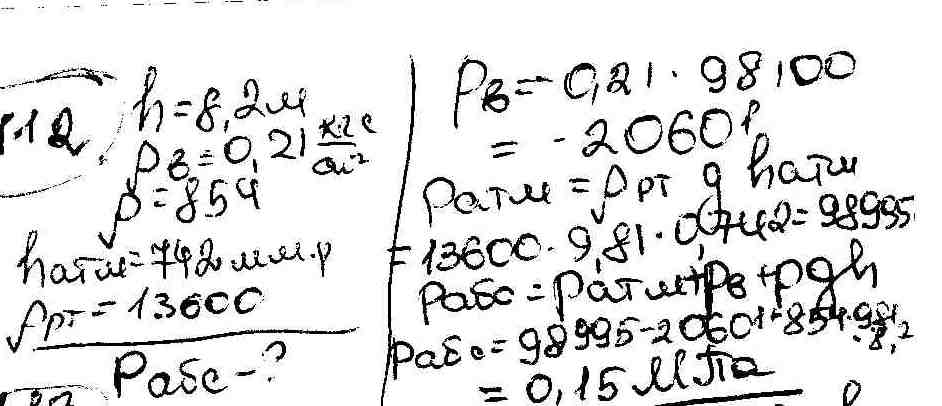 1.12
h=8,2м
Pв=0,21 кгс/см²
ρ=854
hатм=742мм.р
ρрт=13600
Pабс-?
Pв=-0,21·98100
= -20601
Pатм=ρрт g hатм
=13600·9,81·0,742=98995
Pабс=Pатм+Pв+ρgh
Pабс=98995-20601+854·9,81·8,2
=0,15 МПа